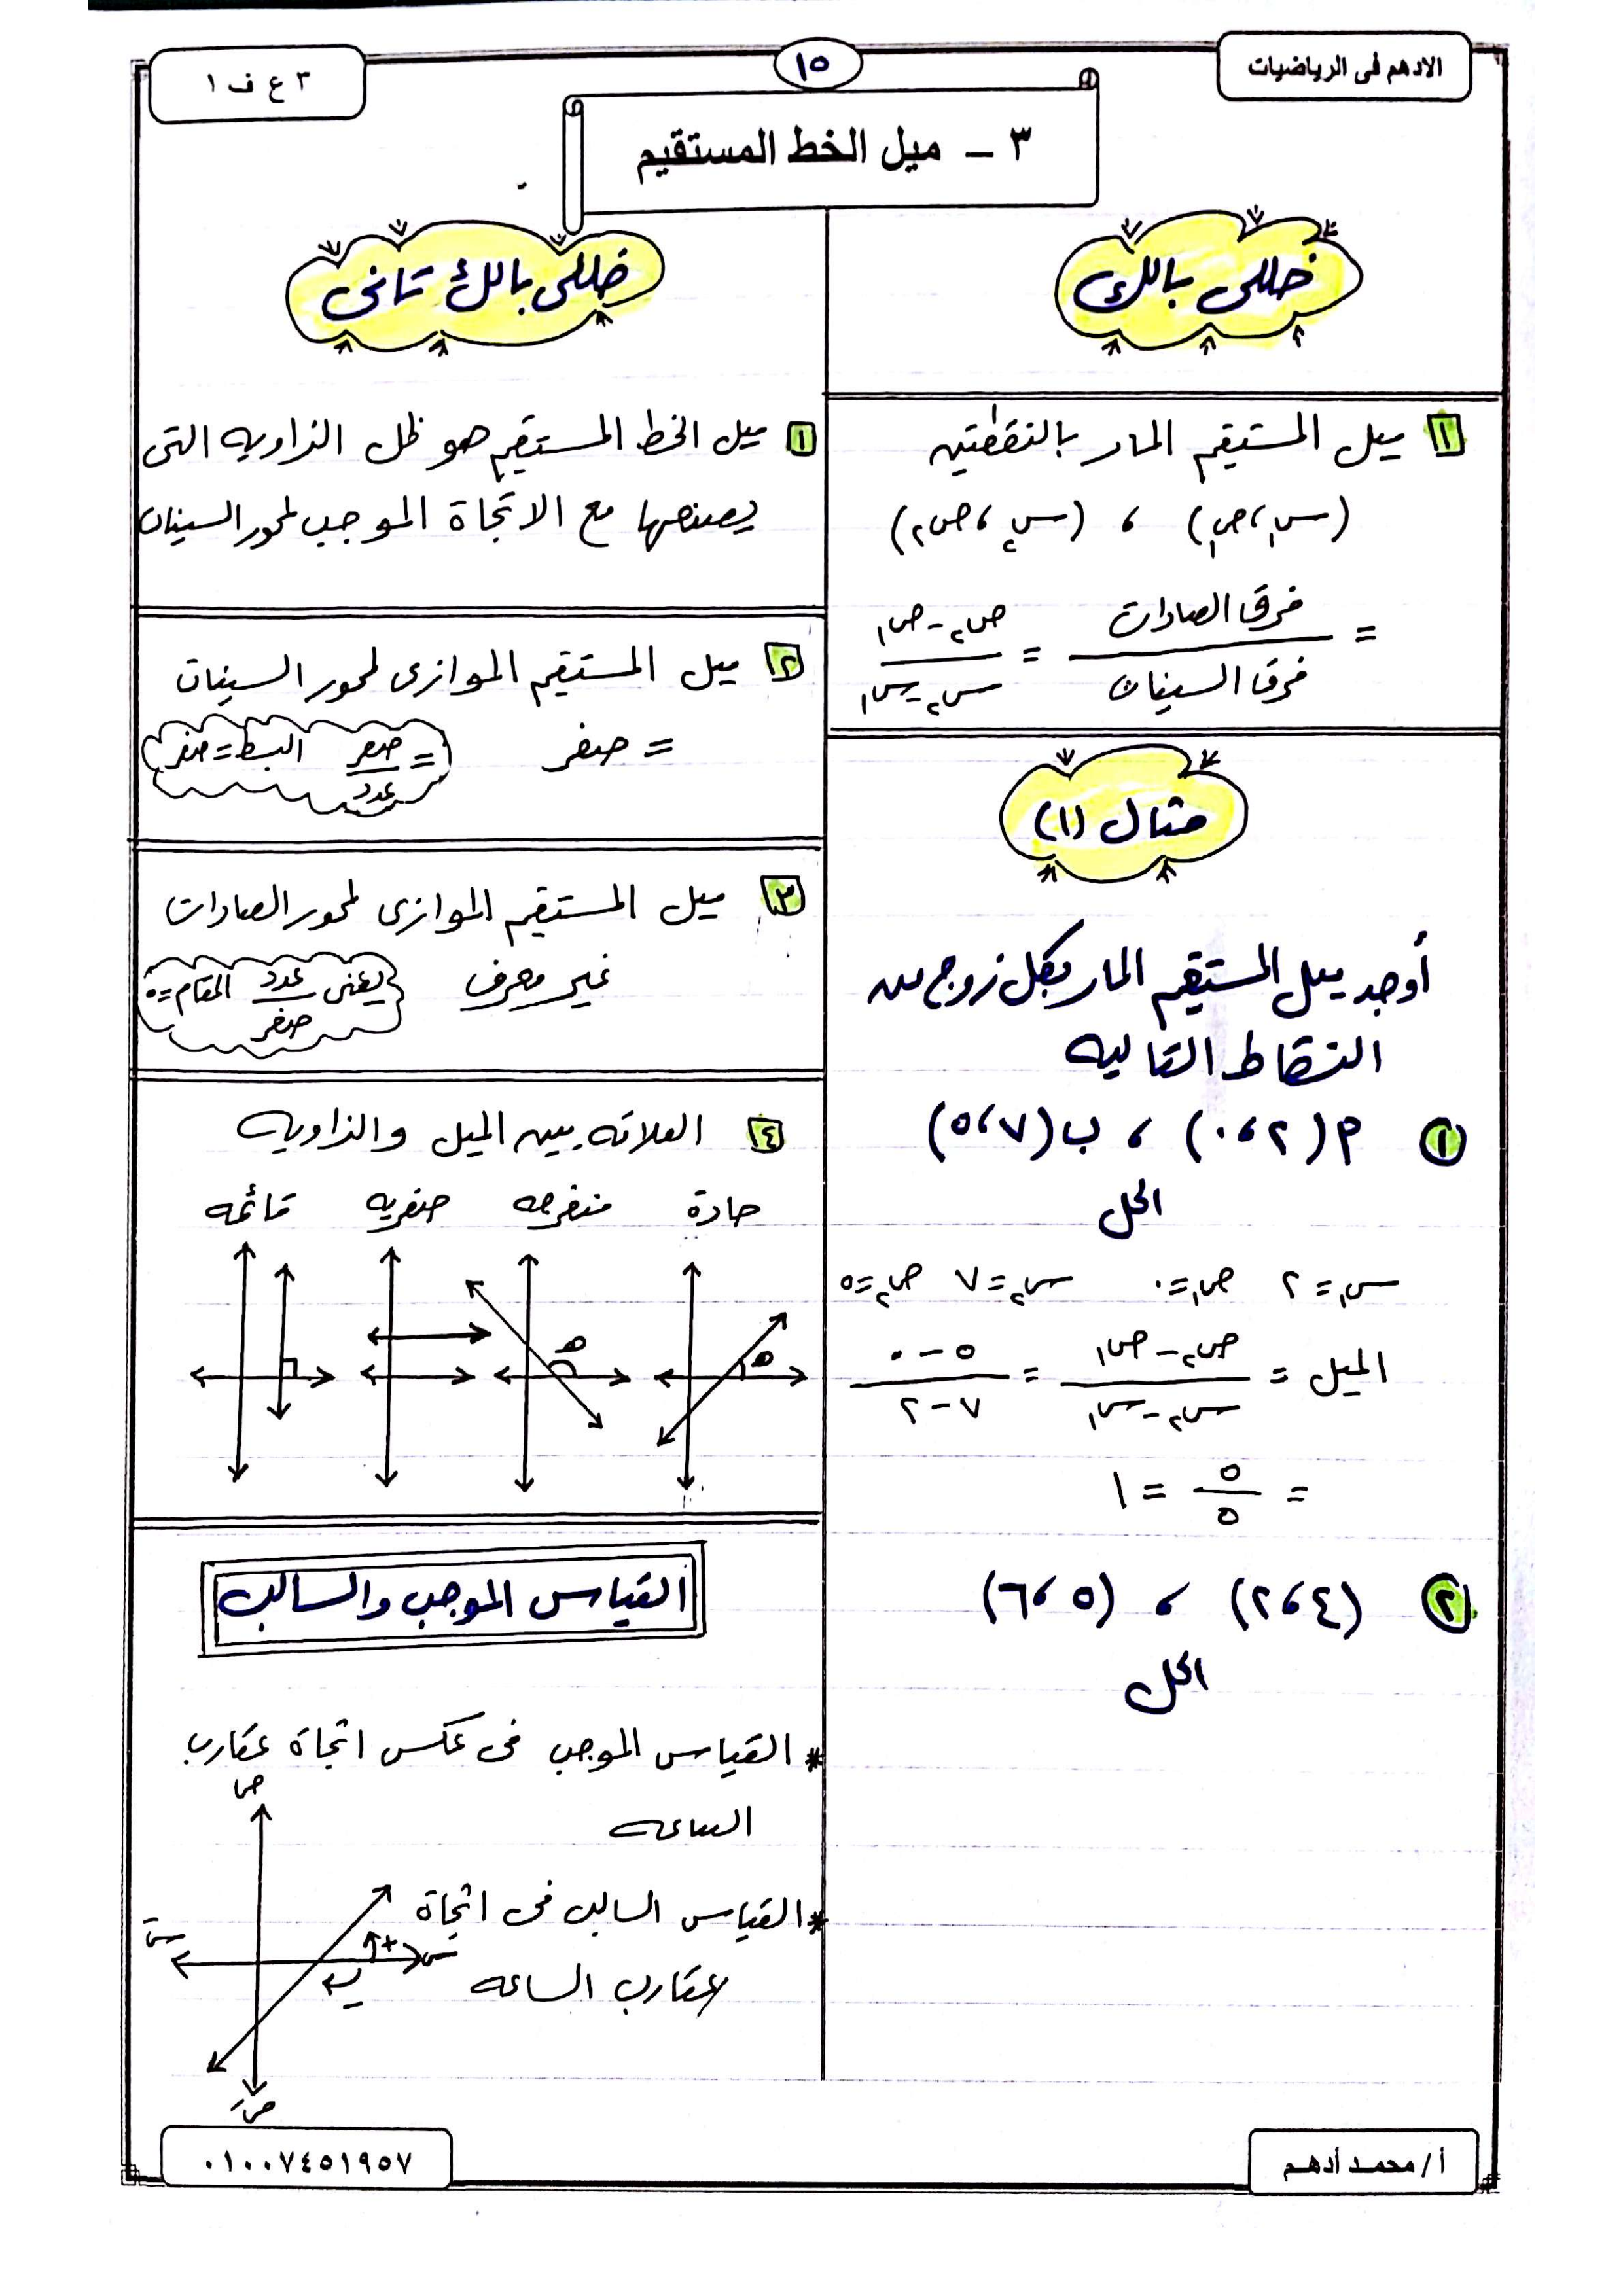 الادهم فى الرياضيات
١٥
٣ ع ف ١
٣ ـ ميل الخط المستقيم
خللى بالك
١ ميل المستقيم المار بالنقطتين
(س١ ، ص١) ، (س٢ ، ص٢)
= فرق الصادات / فرق السينات = ص٢ - ص١ / س٢ - س١
مثال (١)
أوجد ميل المستقيم المار بكل زوج من
النقاط التاليه
١ م (٢ ، ٠) ، ب (٧ ، ٥)
الحل
س١ = ٢ ص١ = ٠ س٢ = ٧ ص٢ = ٥
الميل = ص٢ - ص١ / س٢ - س١ = ٥ - ٠ / ٧ - ٢
= ٥ / ٥ = ١
٢ (٤ ، ٢) ، (٥ ، ٦)
الحل
خللى بالك تانى
١ ميل الخط المستقيم هو ظل الزاويه التى
يصنعها مع الاتجاة الموجب لمحور السينات
٢ ميل المستقيم الموازى لمحور السينات
= صفر
= صفر / عدد البسط = صفر
٣ ميل المستقيم الموازى لمحور الصادات
غير معرف
يعنى عدد / صفر المقام = ٠
٤ العلاقه بين الميل والزاويه
حادة منفرجه صفريه قائمه
ه ه
القياس الموجب والسالب
* القياس الموجب فى عكس اتجاة عقارب
الساعه
* القياس السالب فى اتجاة
عقارب الساعه
ص
س
سَ
+
-
صَ
أ / محمد أدهم
٠١٠٠٧٤٥١٩٥٧